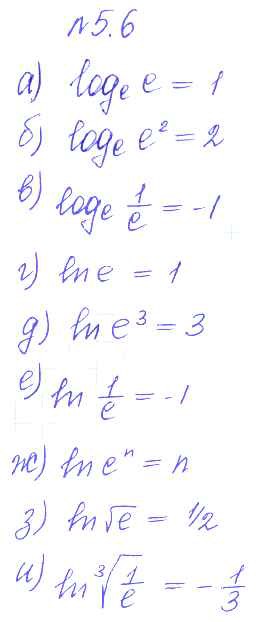 №5.6
а) logₑ e = 1
б) logₑ e² = 2
в) logₑ 1/e = -1
г) ln e = 1
д) ln e³ = 3
е) ln 1/e = -1
ж) ln eⁿ = n
з) ln √e = 1/2
и) ln ³√(1/e) = - 1/3